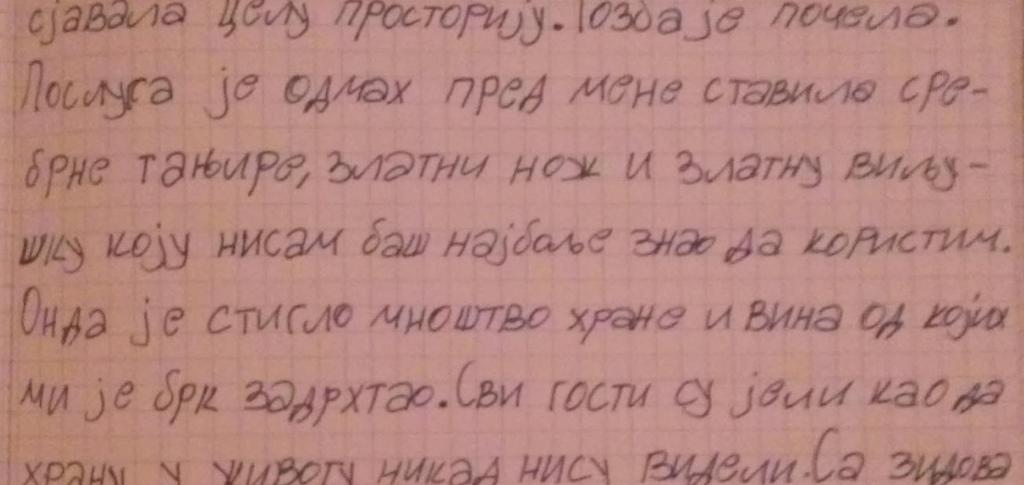 сјавала целу просторију. Гозба је почела.
Послуга је одмах пред мене ставила сре-
брне тањире, златни нож и златну виљу-
шку коју нисам баш најбоље знао да користим.
Онда је стигло мноштво хране и вина од којих
ми је брк задрхтао. Сви гости су јели као да
храну у животу никад нису видели. Са зидова